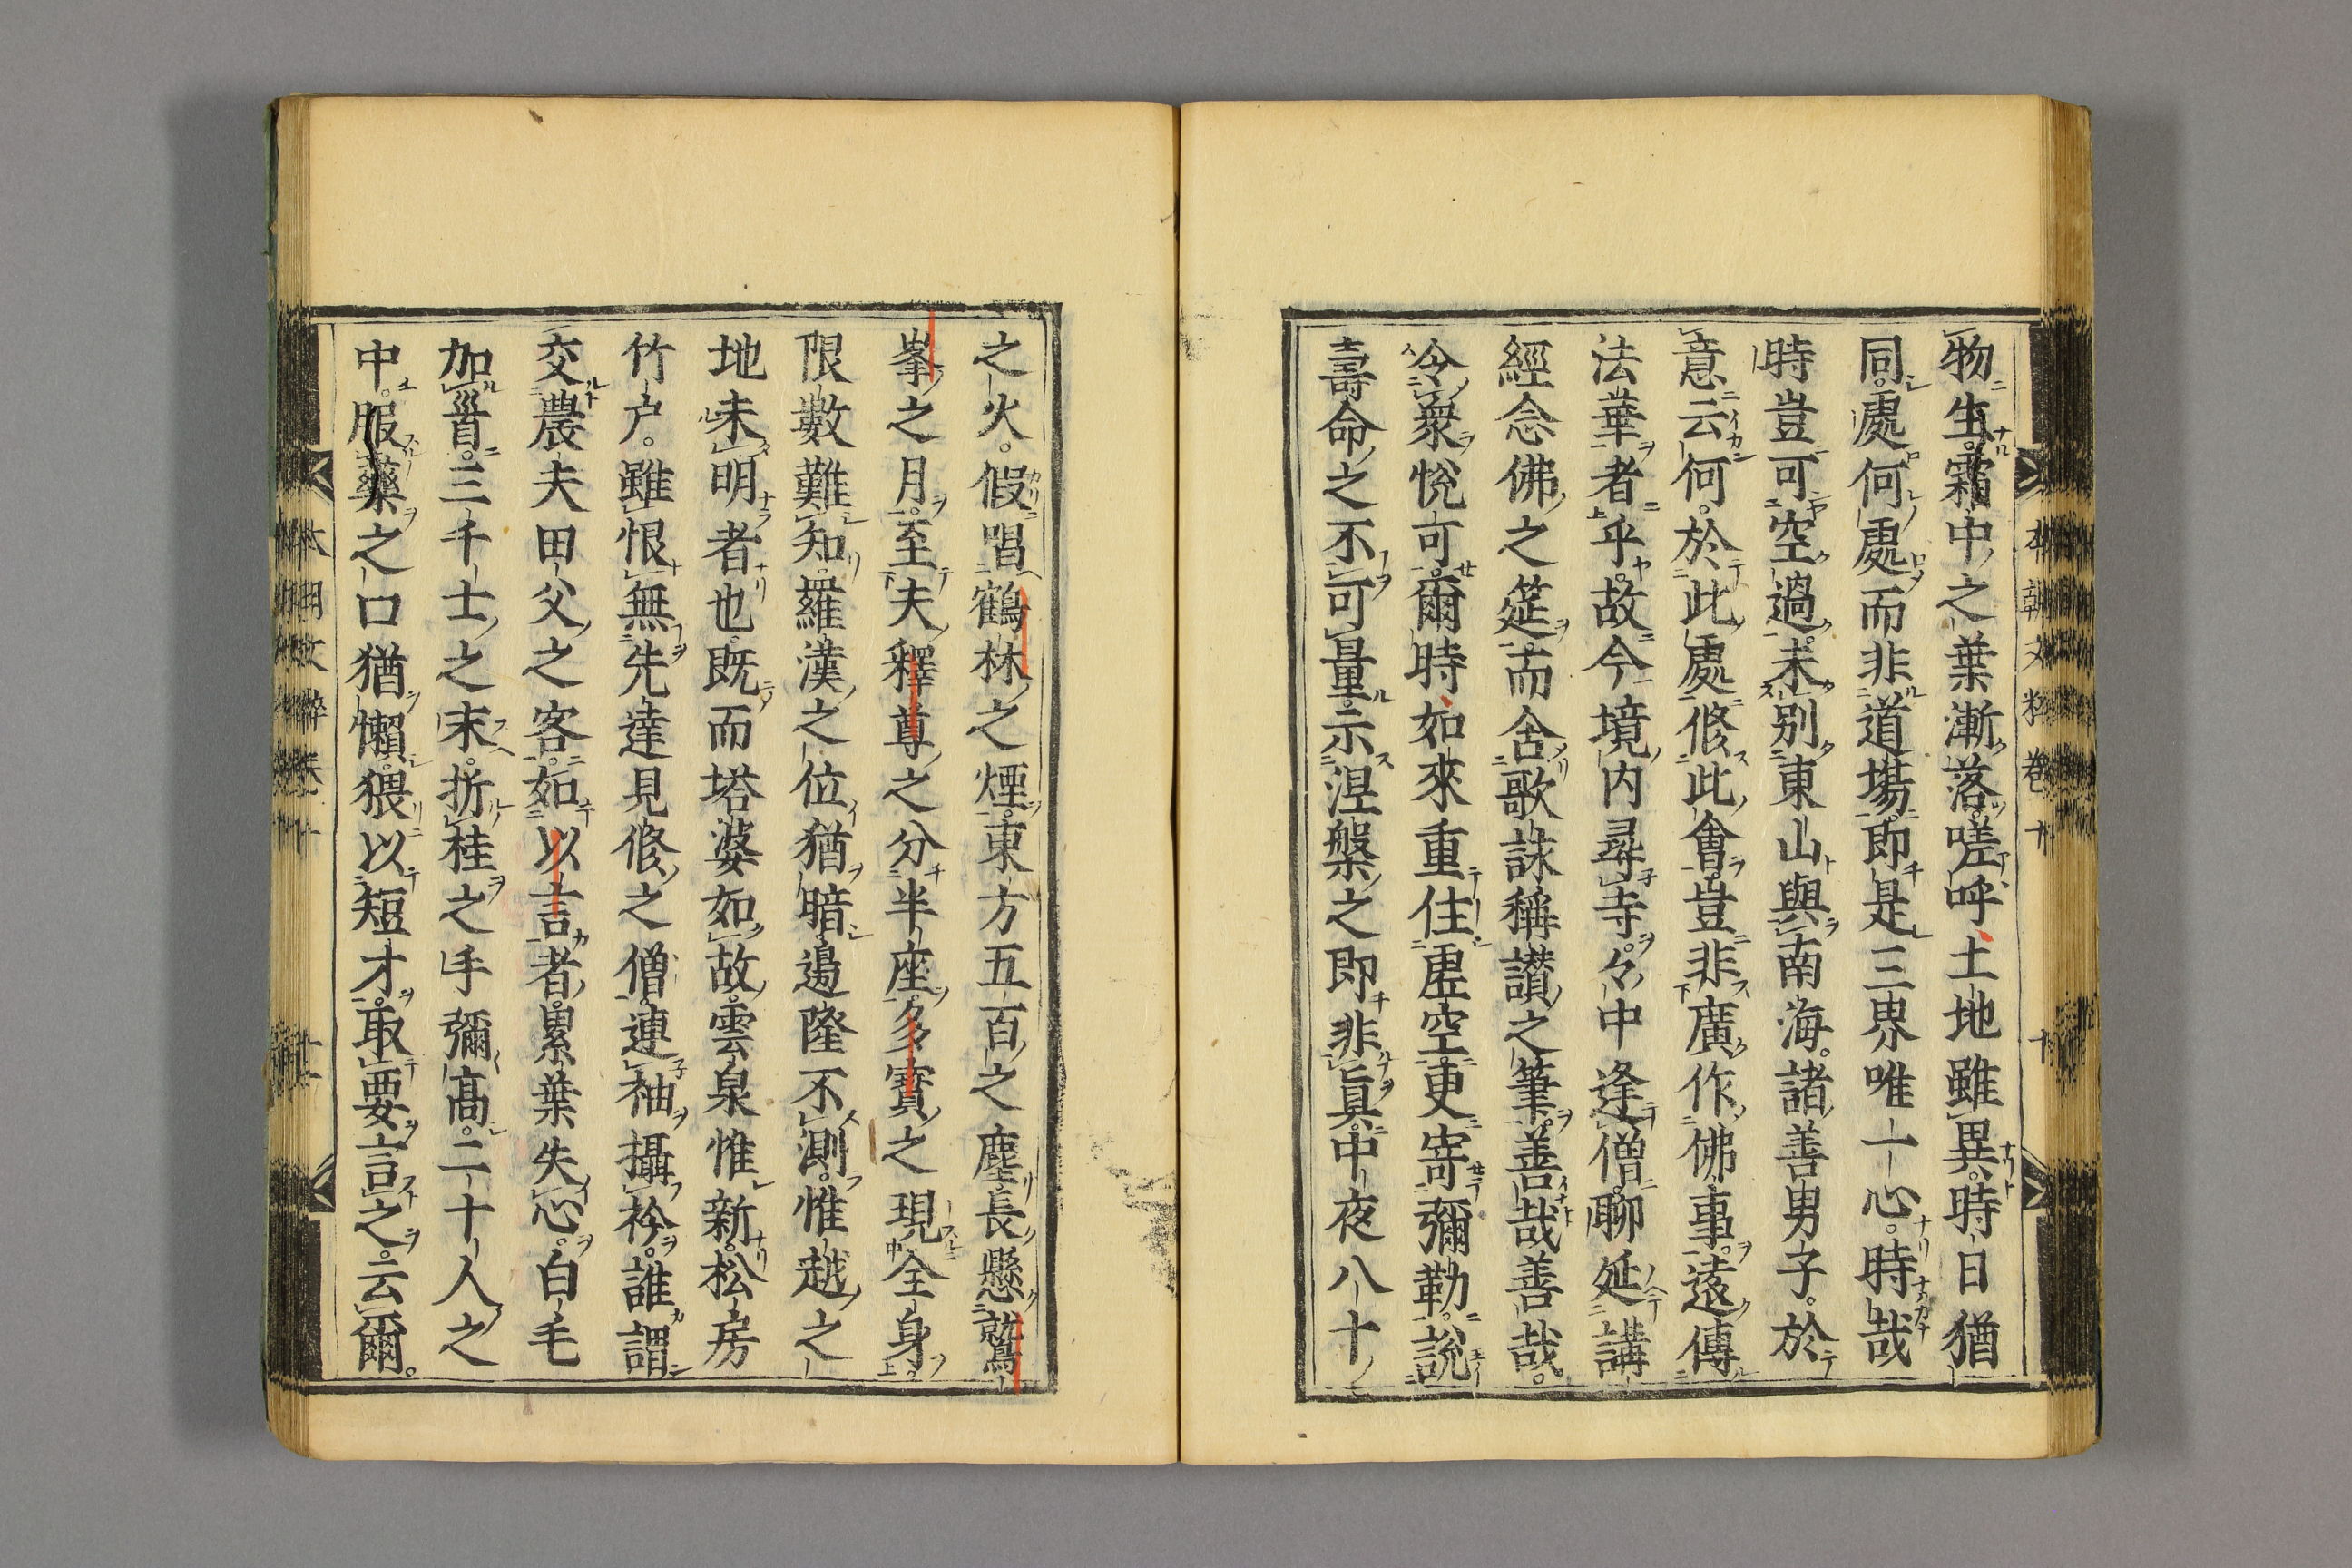 本朝文粹卷十 十
物生。霜中之葉漸落。嗟呼土地雖異。時日猶
同。處何處而非道場。即是三界唯一心。時哉
時豈可空過。未別東山與南海。諸善男子。於
意云何。於此處修此會。豈非廣作佛事。遠傳
法華者乎。故今境内尋寺。々中逢僧。聊延講
經念佛之筵。而舍歌詠稱讃之筆。善哉善哉。
令衆悅可。爾時如來重住虛空。更寄彌勒。說
壽命之不可量。示涅槃之即非眞。中夜八十
之火。假唱鶴林之煙。東方五百之塵。長懸鷲
峯之月。至夫釋尊之分半座。多寶之現全身。
限數難知。羅漢之位猶暗。邊際不測。惟越之
地未明者也。既而塔婆如故。雲泉惟新。松房
竹戶。雖恨無先達見修之僧。連袖攝衿。誰謂
交農夫田父之客。如以言者。累葉失心。白毛
加首。三千士之末。折桂之手彌高。二十人之
中。服藥之口猶懶。猥以短才。取要言之。云爾。
本朝文粹卷十 十一